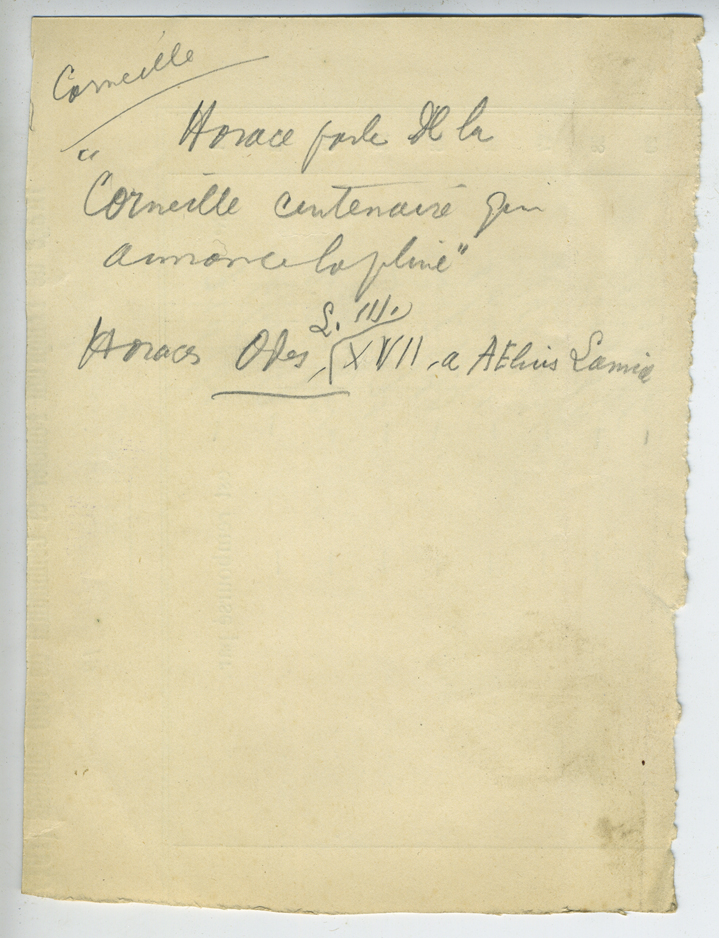 Corneille
Horace parle de la
" Corneille centenaire qui
annonce la pluie"
Horace Odes, L. III, XVII, a AElius Lamia